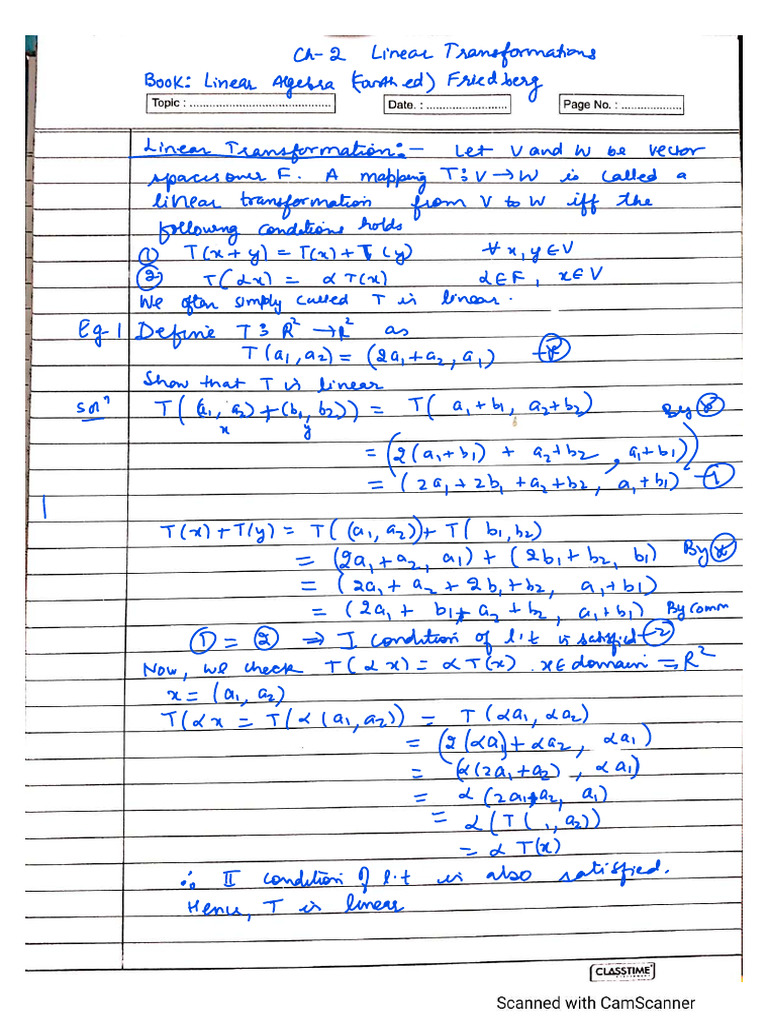 Ch-2 Linear Transformations
Book: Linear Algebra (Fourth ed) Friedberg
Topic : ........................................ Date. : ........................ Page No. : ..................
Linear Transformation:- Let V and W be vector
spaces over F. A mapping T: V → W is called a
linear transformation from V to W iff the
following conditions holds
① T(x + y) = T(x) + T(y) ∀ x, y ∈ V
② T(αx) = α T(x) α ∈ F, x ∈ V
We often simply called T is linear.
Eg-1 Define T: R² → R² as
T(a₁, a₂) = (2a₁ + a₂, a₁) —⊛
Show that T is linear
Solⁿ T((a₁, a₂) + (b₁, b₂)) = T(a₁ + b₁, a₂ + b₂) By ⊛
x y
= (2(a₁ + b₁) + a₂ + b₂, a₁ + b₁))
= (2a₁ + 2b₁ + a₂ + b₂, a₁ + b₁) —①
T(x) + T(y) = T((a₁, a₂)) + T(b₁, b₂)
= (2a₁ + a₂, a₁) + (2b₁ + b₂, b₁) By ⊛
= (2a₁ + a₂ + 2b₁ + b₂, a₁ + b₁)
= (2a₁ + b₁ + a₂ + b₂, a₁ + b₁) By comm
① = ② ⇒ I condition of l.t is satisfied —②
Now, we check T(αx) = αT(x). x ∈ domain = R²
x = (a₁, a₂)
T(αx = T(α(a₁, a₂)) = T(αa₁, αa₂)
= (2(αa₁) + αa₂, αa₁)
= (α(2a₁ + a₂), αa₁)
= α(2a₁ + a₂, a₁)
= α(T( ₁, a₂))
= α T(x)
∴ II condition of l.t is also satisfied.
Hence, T is linear
CLASSTIME
Scanned with CamScanner